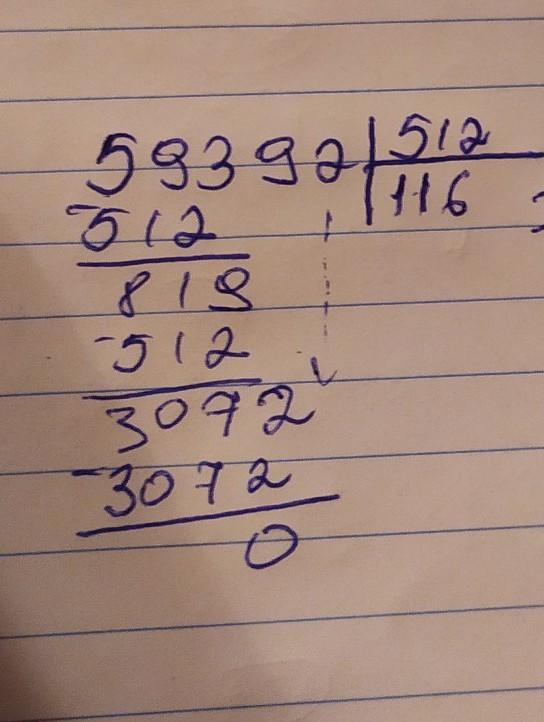 59392 512
-512 116
819
-512
3072
-3072
0